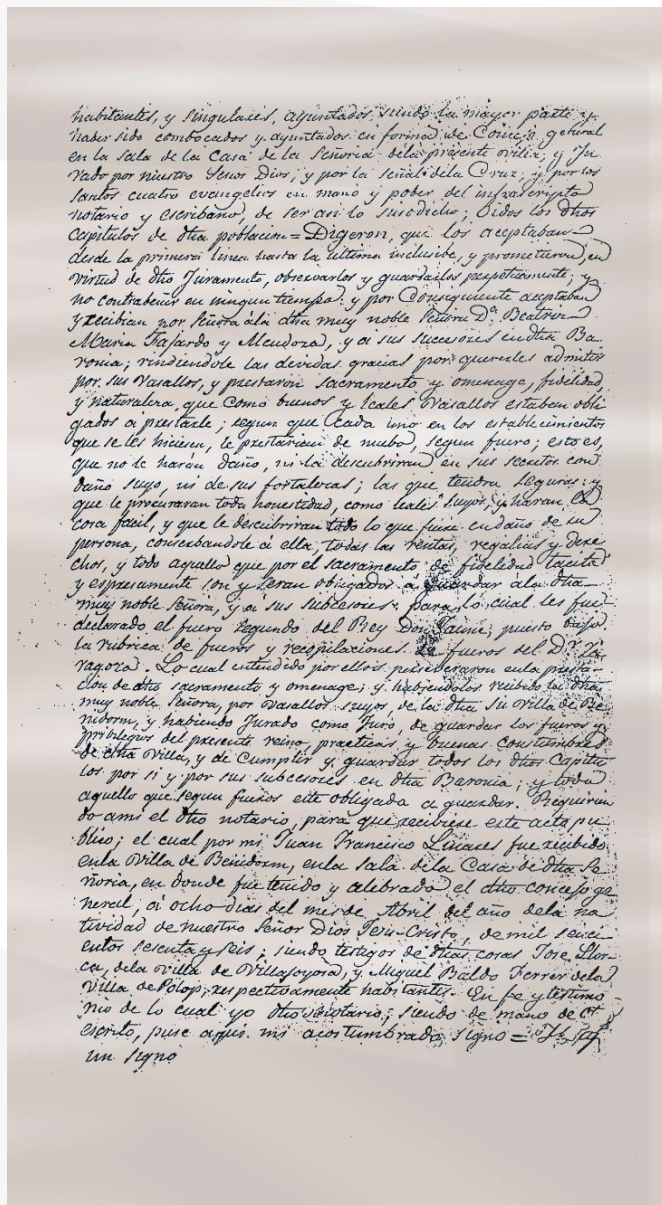 habitantes, y singulares, ayuntados siendo la mayor parte y
haber sido combocados y ayuntados en forma de Concejo general
en la Sala de la Casa de la Señoria dela presente villa; y Ju
rado por nuestro Señor Dios; y por la señal dela Cruz; y por los
santos cuatro evangelios en mano y poder del infrascripto
notario y escribano, de ser asi lo susodicho; Oidos los dhos
Capitulos de dha poblacion = Digeron, que los aceptaban
desde la primera linea hasta la ultima inclusibe, y prometieron, en
virtud de dho Juramento, observarlos y guardarlos perpetuamente; y
no contrabenir en ningun tiempo: y por Consiguiente aceptaban
y recibian por Señora ála dha muy noble Señora Dª Beatriz
Maria Fajardo y Mendoza, y a sus succesores en dha Ba
ronia; rindiendole las devidas gracias por quererles admitir
por sus Vasallos, y prestaron sacramento y omenage, fidelidad
y naturaleza, que como buenos y leales Vasallos estaban obli
gados a prestarle; segun que cada uno en los establecimientos
que se les hiciesen, le prestarian de nuebo, segun fuero; esto es,
que no le harán daño, ni la descubriran en sus secretos con
daño suyo, ni de sus fortalezas; las que tendra seguras: y
que le procuraran toda honestidad, como leales suyos, y haran
cosa facil, y que le descubriran todo lo que fuese en daño de su
persona, conserbandole á ella, todas las rentas, regalias y dere
chos, y todo aquello que por el sacramento de fidelidad tacita
y espresamente son y seran obligados á guardar ala dha
muy noble Señora, y a sus subcesores: para lo cual les fue
declarado el fuero segundo del Rey Don Jaime, puesto bajo
la rubrica de fueros y recopilaciones de fueros del Dr. Za
ragoza. Lo cual entendido por ellos perseveraron enla presta
cion de dho sacramento y omenage; y habiendolos recibido la dha
muy noble Señora, por vasallos suyos, de la dha Su Villa de Be
nidorm, y habiendo Jurado como Juro, de guardar los fueros y
pribilegios del presente reino, practicas y buenas constumbres
de dha Villa, y de Cumplir y guardar todos los dhos Capitu
los por si y por sus subcesores en dha Baronia; y todo
aquello que segun fueros esté obligada a guardar. Requirien
do ami el dho notario, para que recibiese este acto pu
blico; el cual por mi Juan Francisco Linares fue recibido
enla Villa de Benidorm, enla sala dela Casa de dha Se
ñoria, en donde fue tenido y celebrado el dho concejo ge
neral, á ocho dias del mes de Abril del año dela na
tividad de nuestro Señor Dios Jesu-Cristo, de mil seisci
entos sesenta y seis; siendo testigos de dhas cosas Jose Llor
ca, dela villa de Villajoyosa, y Miguel Baldo Ferrer dela
Villa de Polop, respectivamente habitantes. En fe y testimo
nio de lo cual yo dho notario; siendo de mano de otro
escrito, puse aqui mi acostumbrado signo =
un signo